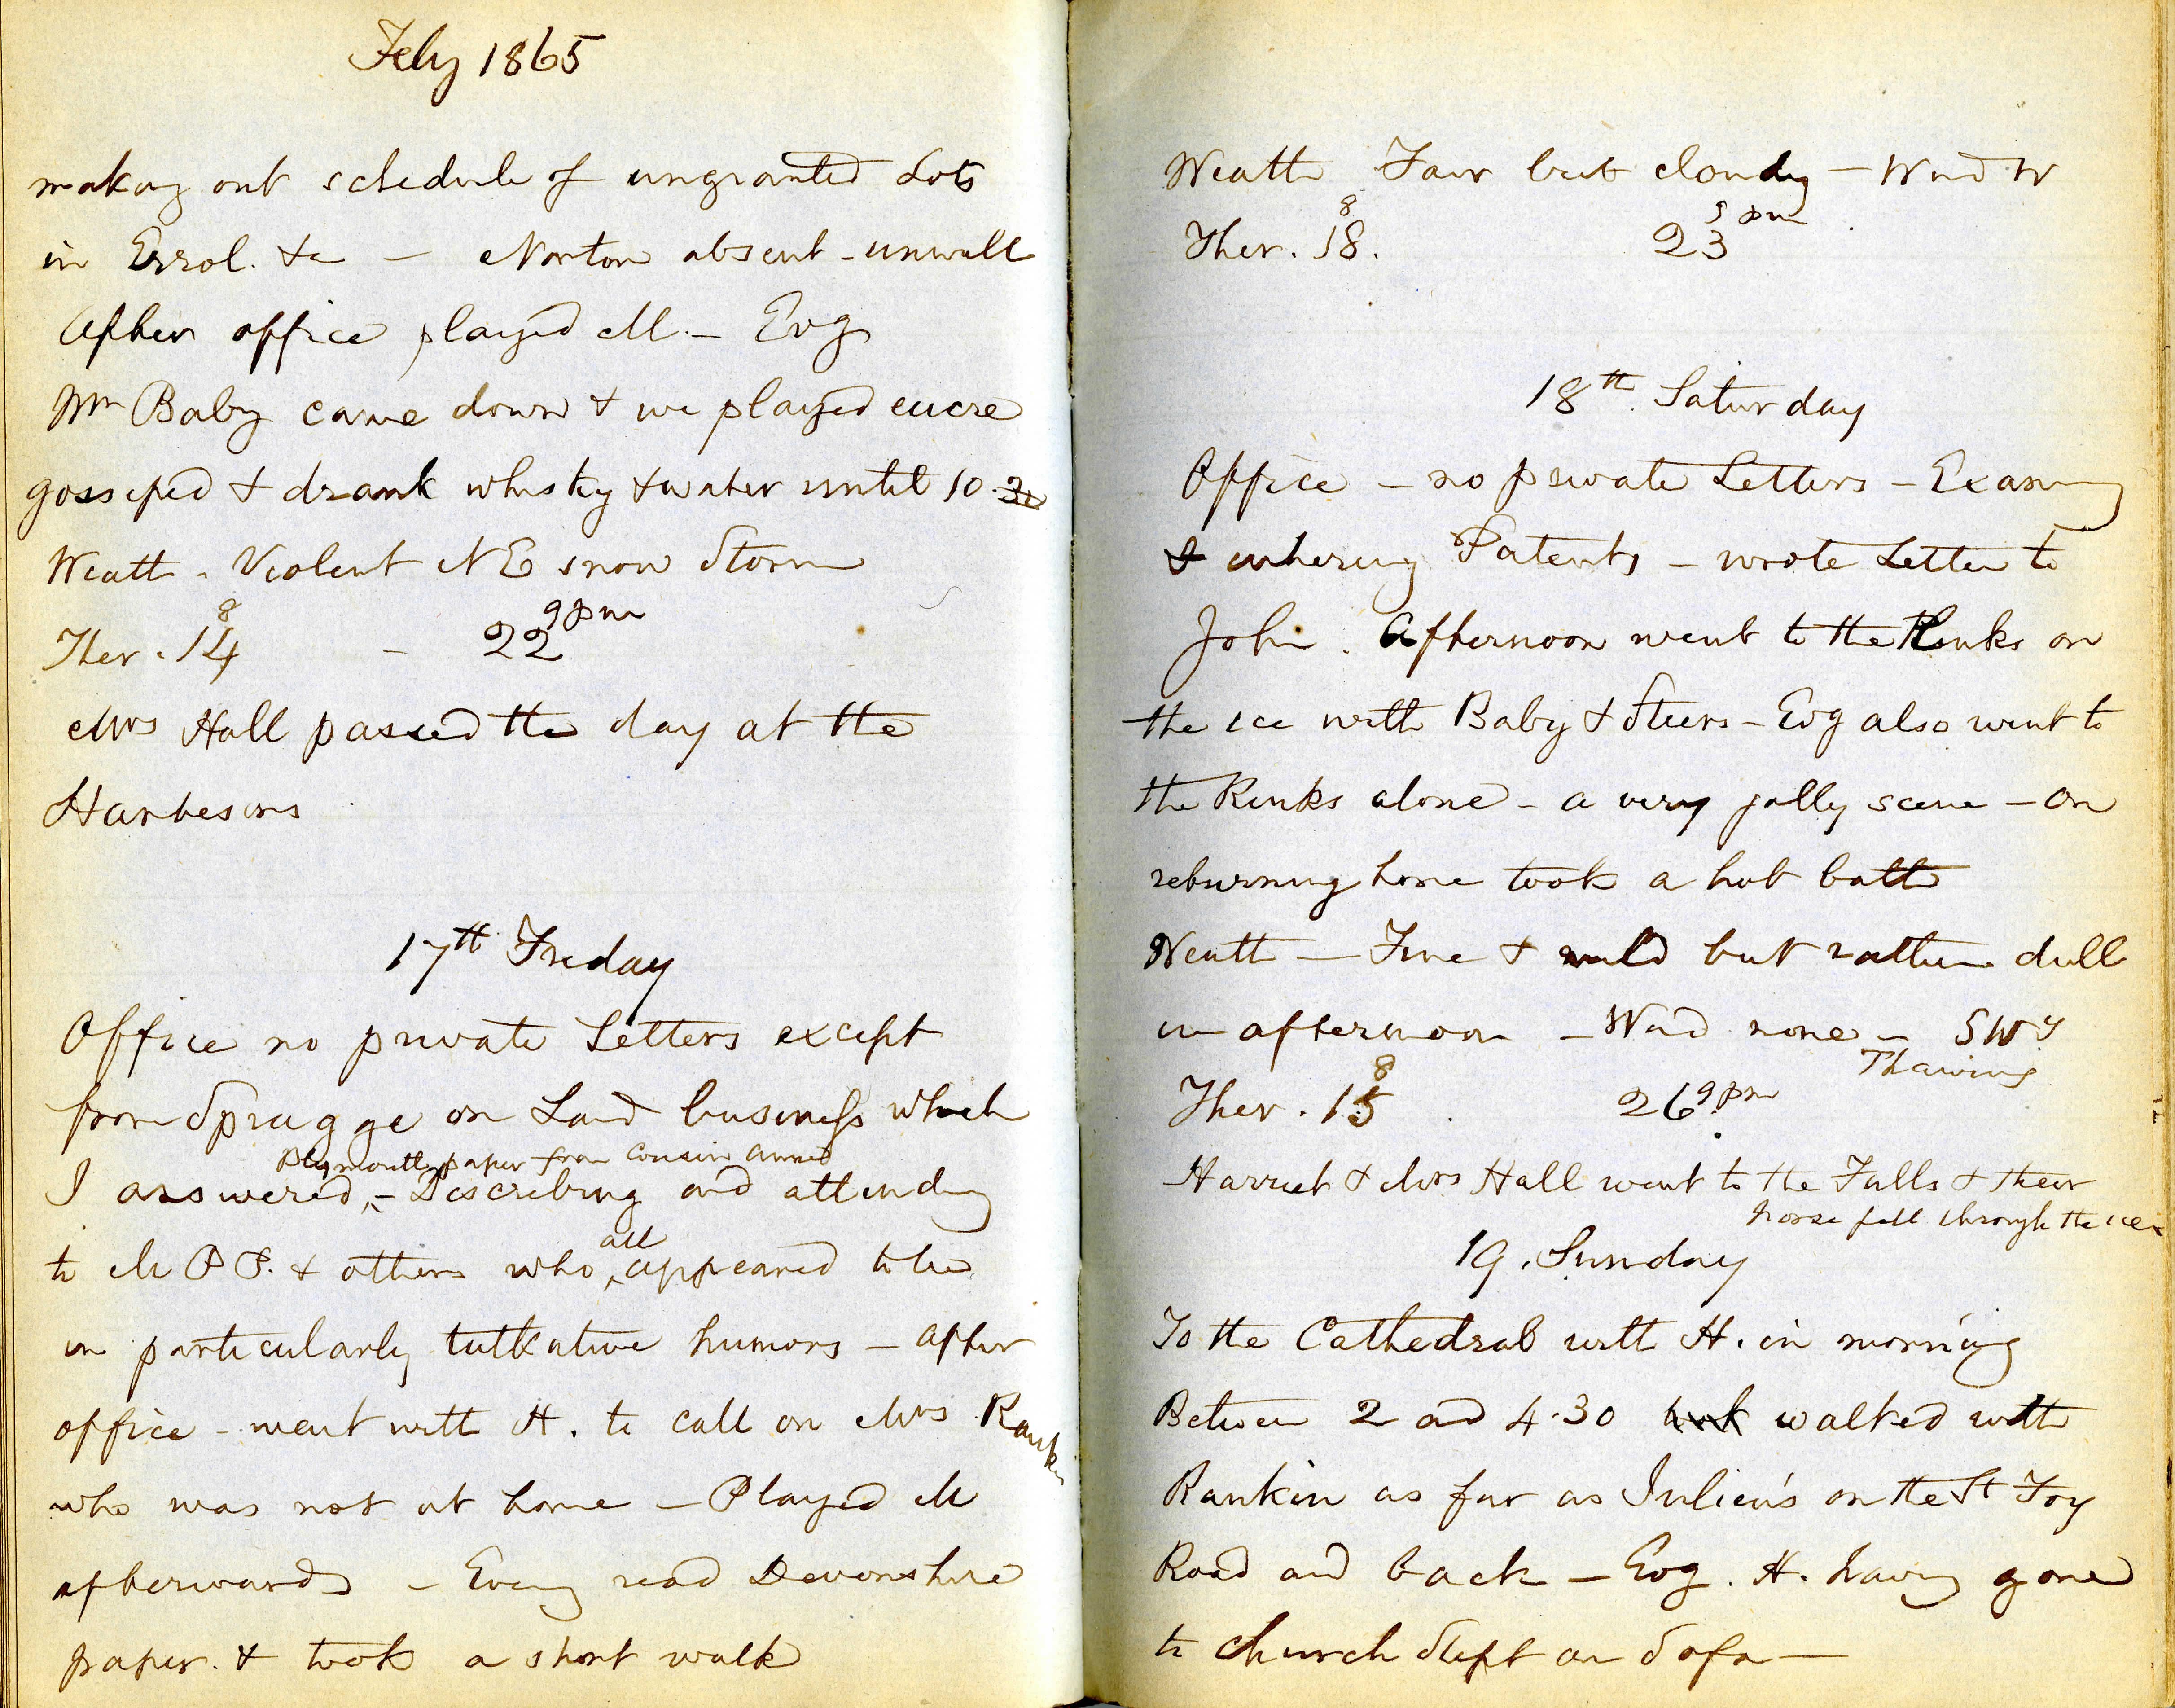 Feby 1865
making out schedule of ungranted Lots
in Errol. &c — Norton absent - unwell
After office played M. — Evg
Mr Baby came down & we played eucre
gossiped & drank whisky & water until 10.30
Weath - Violent NE snow Storm
Ther. 14 8 — 22 9 pm
Mrs Hall passed the day at the
Harbesons
17th Friday
Office no private Letters except
from Spragge on Land business which
Plymouth paper from Cousin Anne
I answered, - Describing and attending
to M P P. & others who all appeared to be
in particularly talkative humors — after
office - went with H. to call on Mrs Rankin
who was not at home — Played M
afterwards — Eveng read Devonshire
paper. & took a short walk
Weath Fair but cloudy — Wind W
Ther. 18. 8 23 9 pm
18th Saturday
Office — no private Letters — Examing
& entering Patents — wrote Letter to
John. Afternoon went to the Rinks on
the ice with Baby & Steers — Evg also went to
the Rinks alone — a very jolly scene — On
returning home took a hot bath
Weath — Fine & mild but rather dull
in afternoon — Wind none — SWy
Thawing
Ther. 15 8 26 9 pm
Harriet & Mrs Hall went to the Falls & their
horse fell through the ice
19. Sunday
To the Cathedral with H. in morning
Between 2 and 4.30 walked with
Rankin as far as Julien's on the St Foy
Road and back — Evg. H. having gone
to church slept on Sofa —